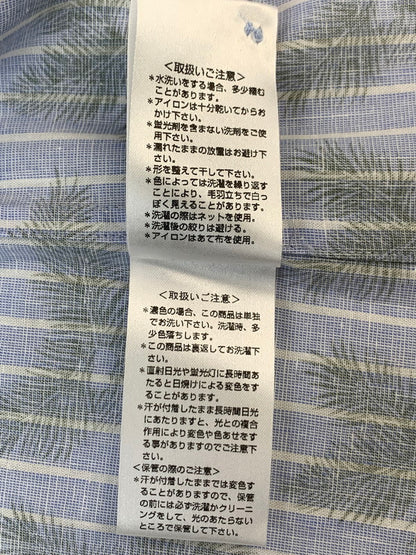 ＜取扱いご注意＞
＊水洗いをする場合、多少縮む
ことがあります。
＊アイロンは十分乾いてからお
かけ下さい。
＊蛍光剤を含まない洗剤をご使
用下さい。
＊濡れたままの放置はお避け下
さい。
＊形を整えて干して下さい。
＊色によっては洗濯を繰り返す
ことにより、毛羽立ちで白っ
ぽく見えることがあります。
＊洗濯の際はネットを使用。
＊洗濯後の絞りは避ける。
＊アイロンはあて布を使用。
＜取扱いご注意＞
＊濃色の場合、この商品は単独
でお洗い下さい。洗濯時、多
少色落ちします。
＊この商品は裏返してお洗濯下
さい。
＊直射日光や蛍光灯に長時間あ
たると日焼けによる変色をす
ることがあります。
＊汗が付着したまま長時間日光
にあたりますと、光との複合
作用により変色や色あせをす
る事がありますのでご注意下
さい。
＜保管の際のご注意＞
＊汗が付着したままでは変色す
ることがありますので、保管
の前には必ず洗濯かクリーニ
ングをして、光のあたらない
ところで保管して下さい。